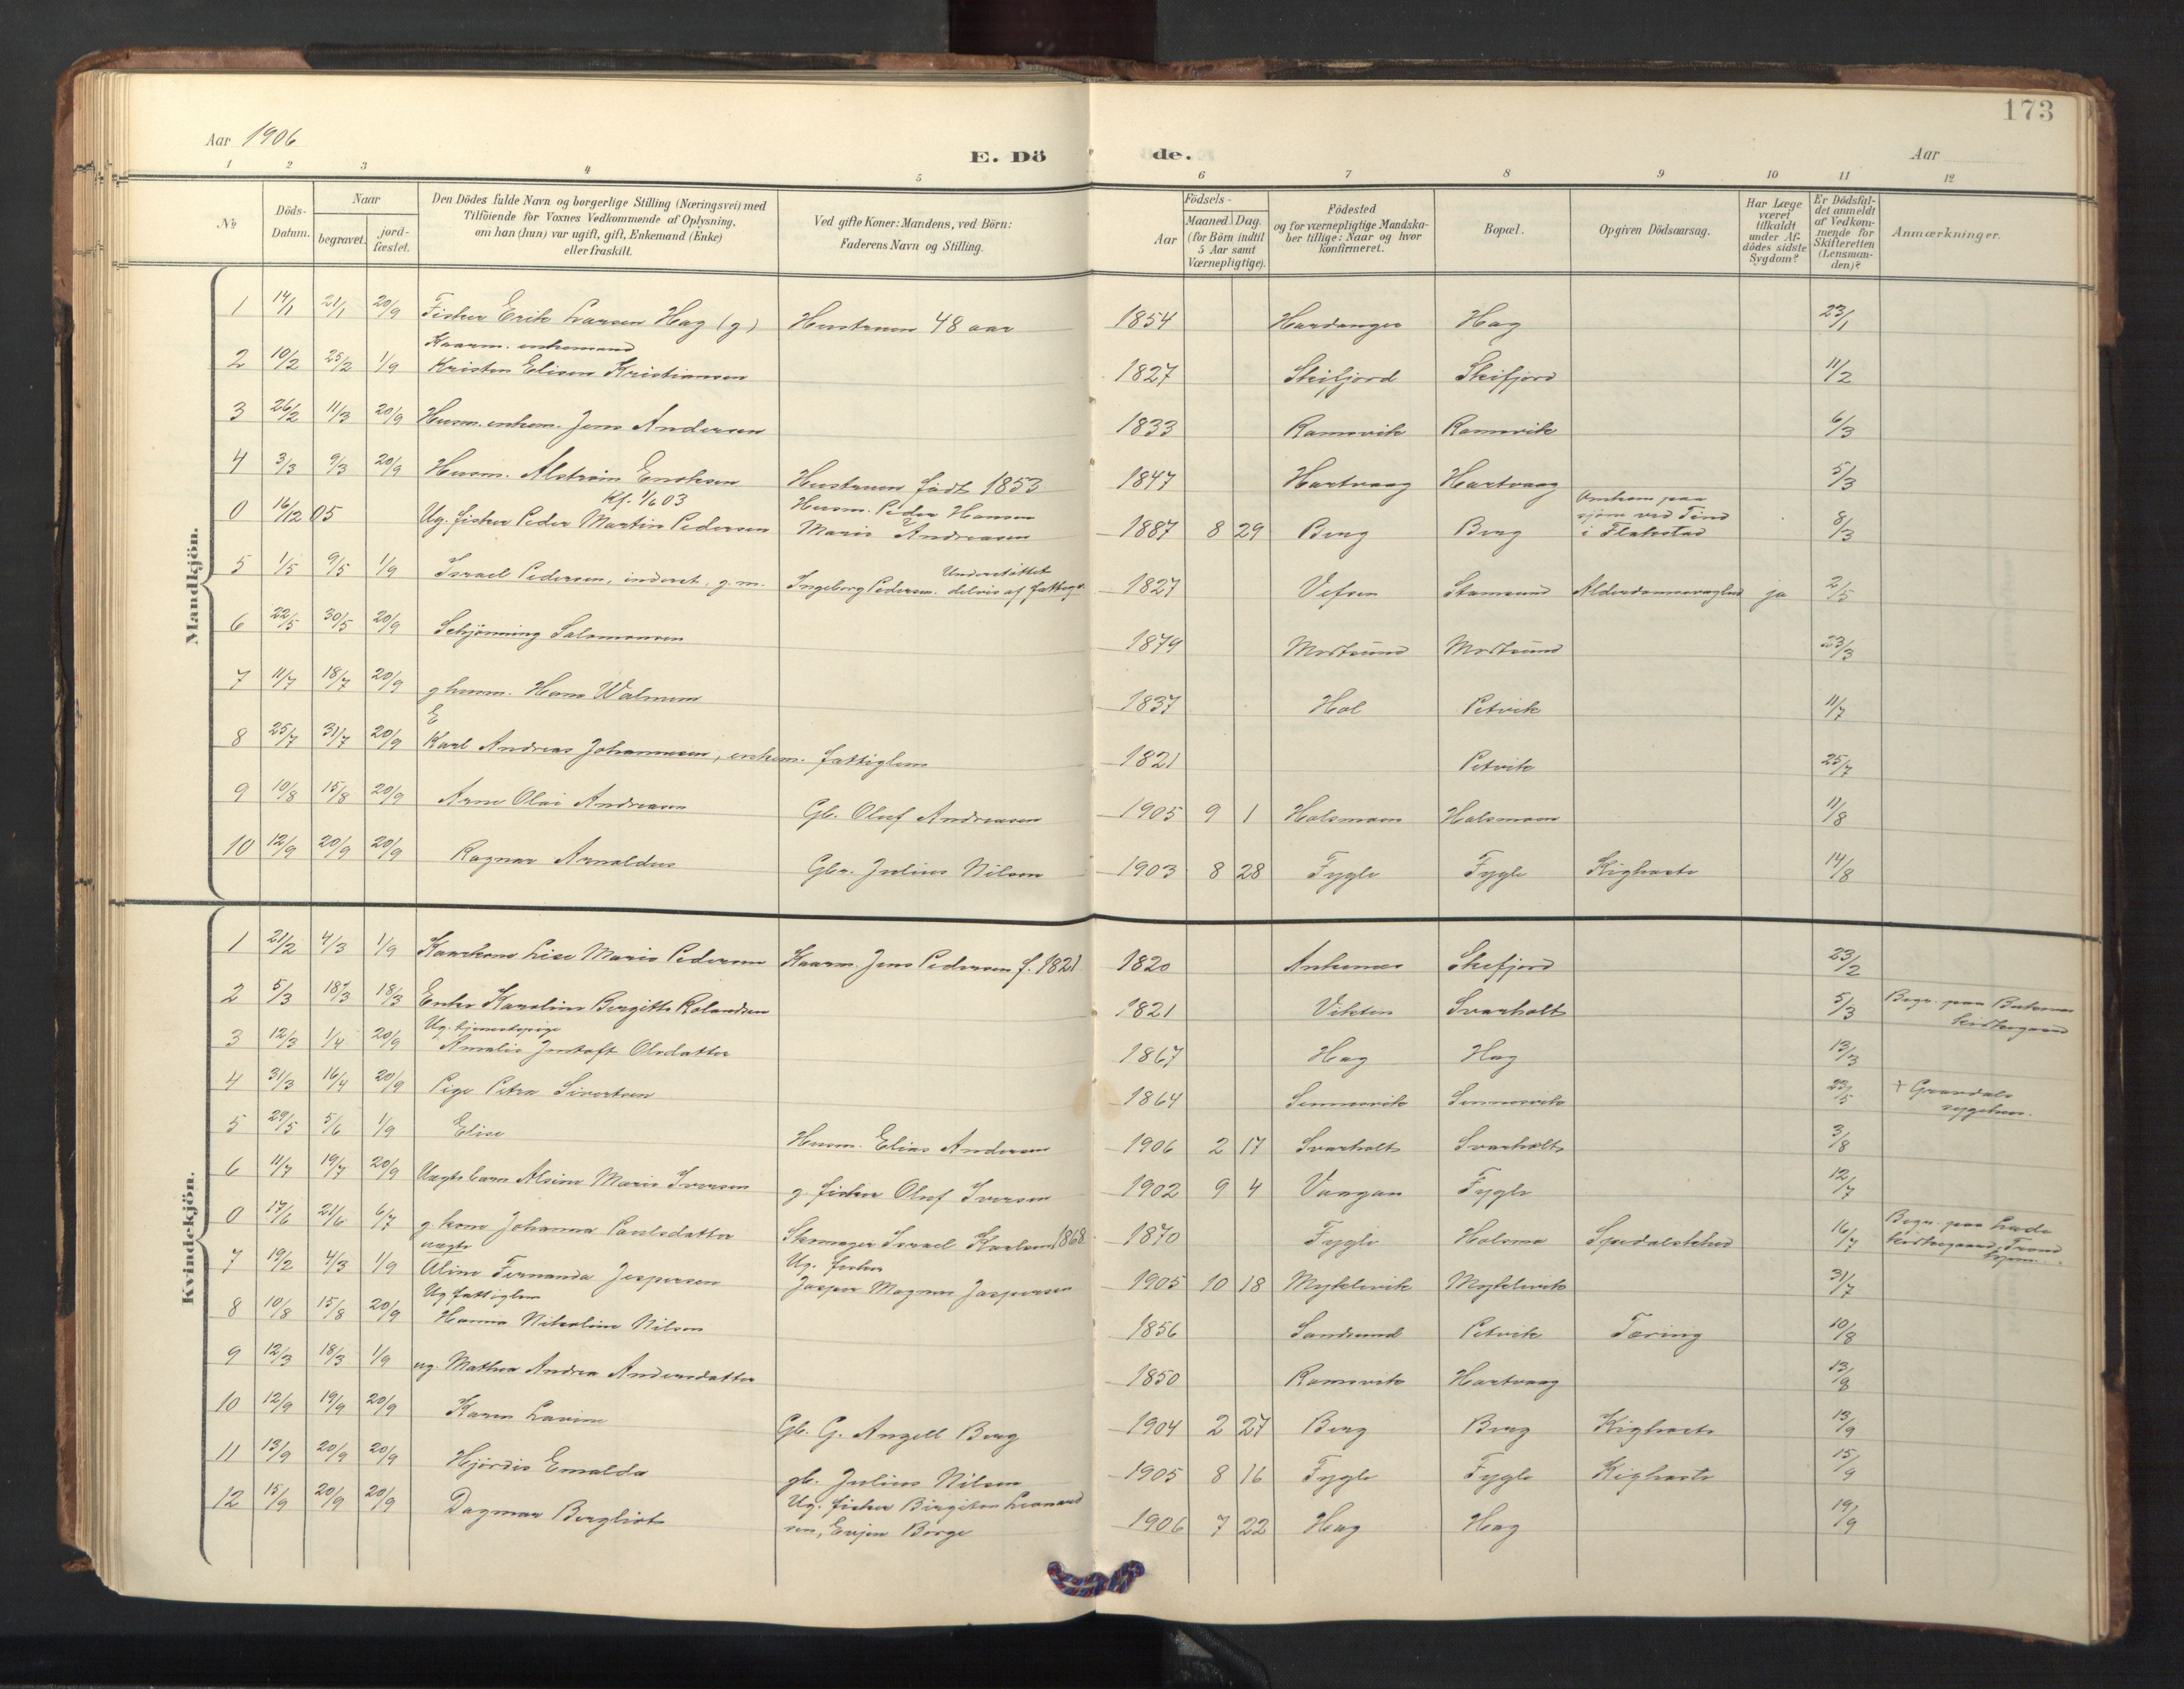 173
Aar 1906
E. Dö de.
Aar
1 2 3 4 5 6 7 8 9 10 11 12
No
Döds-Datum.
Naar
begravet.
jord-fæstet.
Den Dödes fulde Navn og borgerlige Stilling (Næringsvei) med
Tilföiende for Voxnes Vedkommende af Oplysning,
om han (hun) var ugift, gift, Enkemand (Enke)
eller fraskilt.
Ved gifte Koner: Mandens, ved Börn:
Faderens Navn og Stilling.
Födsels-
Aar
Maaned. Dag.
(for Börn indtil
5 Aar samt
Værnepligtige).
Födested
og for værnepligtige Mandska-
ber tillige: Naar og hvor
konfirmeret.
Bopæl.
Opgiven Dödsaarsag.
Har Læge
været
tilkaldt
under Af-
dödes sidste
Sygdom?
Er Dödsfal-
det anmeldt
af Vedkom-
mende for
Skifteretten
(Lensman-
den)?
Anmærkninger.
Mandkjön.
1 14/1 21/1 20/9 Fisker Erik Larsen Hag (g) Hustruen 48 aar 1854 Hardanger Hag 23/1
Kaarm. enkemand
2 10/2 25/2 1/9 Kristen Elisen Kristiansen 1827 Skifjord Skifjord 11/2
3 26/2 11/3 20/9 Husm. enkem. Jens Andersen 1833 Ramsvik Ramsvik 6/3
4 3/3 9/3 20/9 Husm. Alstrøm Enoksen Hustruen født 1853 1847 Hartvaag Hartvaag 5/3
kf. 1/6 03 Husm. Peder Hansen Omkom paa
0 16/12 05 Ug. fisker Peder Martin Pedersen Marie Andreasen 1887 8 29 Berg Berg sjøen ved Tind i Flakstad 8/3
Understøttet
5 1/5 9/5 1/9 Israel Pedersen, inderst. g. m. Ingeborg Pedersen. delvis af fattigv. 1827 Vefsen Stamsund Alderdomssvaghed ja 2/5
6 22/5 30/5 20/9 Schjønning Salomonsen 1879 Mortsund Mortsund 23/3
7 11/7 18/7 20/9 g husm. Hans Walmum 1837 Hol Petvik 11/7
E
8 25/7 31/7 20/9 Karl Andreas Johannesen, enkem. fattiglem 1821 Petvik 25/7
9 10/8 15/8 20/9 Arne Olai Andreasen Gb. Oluf Andreasen 1905 9 1 Holsmoen Holsmoen 11/8
10 12/9 20/9 20/9 Ragnar Arnoldus Gbr. Julius Nilsen 1903 8 28 Fygle Fygle Kighoste 14/8
Kvindekjön.
1 21/2 4/3 1/9 Kaarkone Lise Marie Pedersen Kaarm. Jens Pedersen f. 1821 1820 Ankenes Skifjord 23/2
2 5/3 18/3 18/3 Enke Karoline Bergitte Rolandsen 1821 Vikten Svarholt 5/3 Begr. paa Buksnes kirkegaard
Ug. tjenestepige
3 12/3 1/4 20/9 Amalie Justoft Olsdatter 1867 Hag Hag 13/3
4 31/3 16/4 20/9 Pige Petra Sivertsen 1864 Sennesvik Sennesvik 23/5 † Gravdals sygehus.
5 29/5 5/6 1/9 Elise Husm. Elias Andersen 1906 2 17 Svarholt Svarholt 3/8
6 11/7 19/7 20/9 Uægte barn Alsine Marie Iversen g. fisker Oluf Iversen 1902 9 4 Vaagan Fygle 12/7
0 17/6 21/6 6/7 g. kone Johanna Paulsdatter Skomager Israel Karlsen 1868 1870 Fygle Holsmo Spedalskhed 16/7 Begr. paa Lade kirkegaard, Trondhjem.
uægte Ug. fisker
7 19/2 4/3 1/9 Aline Fernanda Jespersen Jesper Magnus Jespersen 1905 10 18 Myklevik Myklevik 31/7
Ug fattiglem
8 10/8 15/8 20/9 Hanna Nikoline Nilsen 1856 Sandsund Petvik Tæring 10/8
9 12/3 18/3 1/9 ug. Mathea Andrea Andersdatter 1850 Ramsvik Hartvaag 13/8
10 12/9 19/9 20/9 Karen Lavine Gb. G. Angell Berg 1904 2 27 Berg Berg Kighoste 13/9
11 13/9 20/9 20/9 Hjørdis Emalda gb. Julius Nilsen 1905 8 16 Fygle Fygle Kighoste 15/9
12 15/9 20/9 20/9 Dagmar Bergliot Ug. fisker Birgiton Leonard
sen, Børge 1906 7 22 Hag Hag 19/9